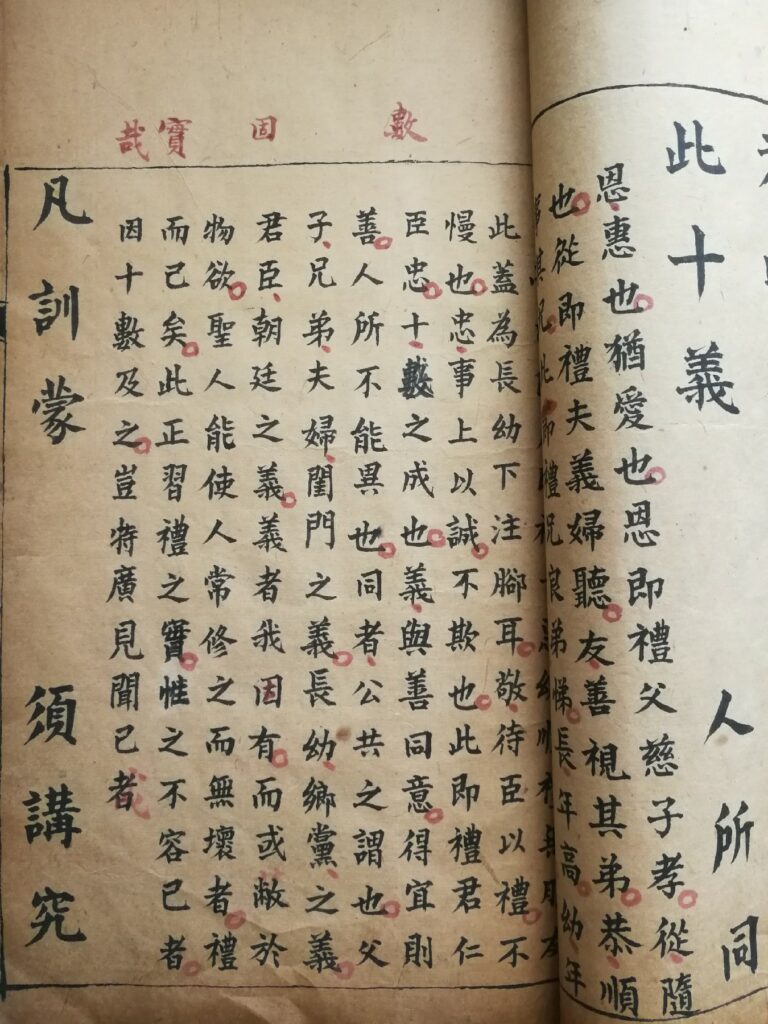 此十義 人所同
恩惠也猶愛也恩即禮父慈子孝從隨
也從即禮夫義婦聽友善視其弟恭順
其兄此即禮兄良弟悌長年高幼年
數 固 實 哉
此蓋為長幼下注腳耳敬待臣以禮不
慢也忠事上以誠不欺也此即禮君仁
臣忠十數之成也義與善同意得宜則
善人所不能異也同者公共之謂也父
子兄弟夫婦閨門之義長幼鄉黨之義
君臣朝廷之義義者我因有而或敝於
物欲聖人能使人常修之而無壞者禮
而己矣此正習禮之實惟之不容已者
因十數及之豈特廣見聞已者
凡訓蒙 須講究